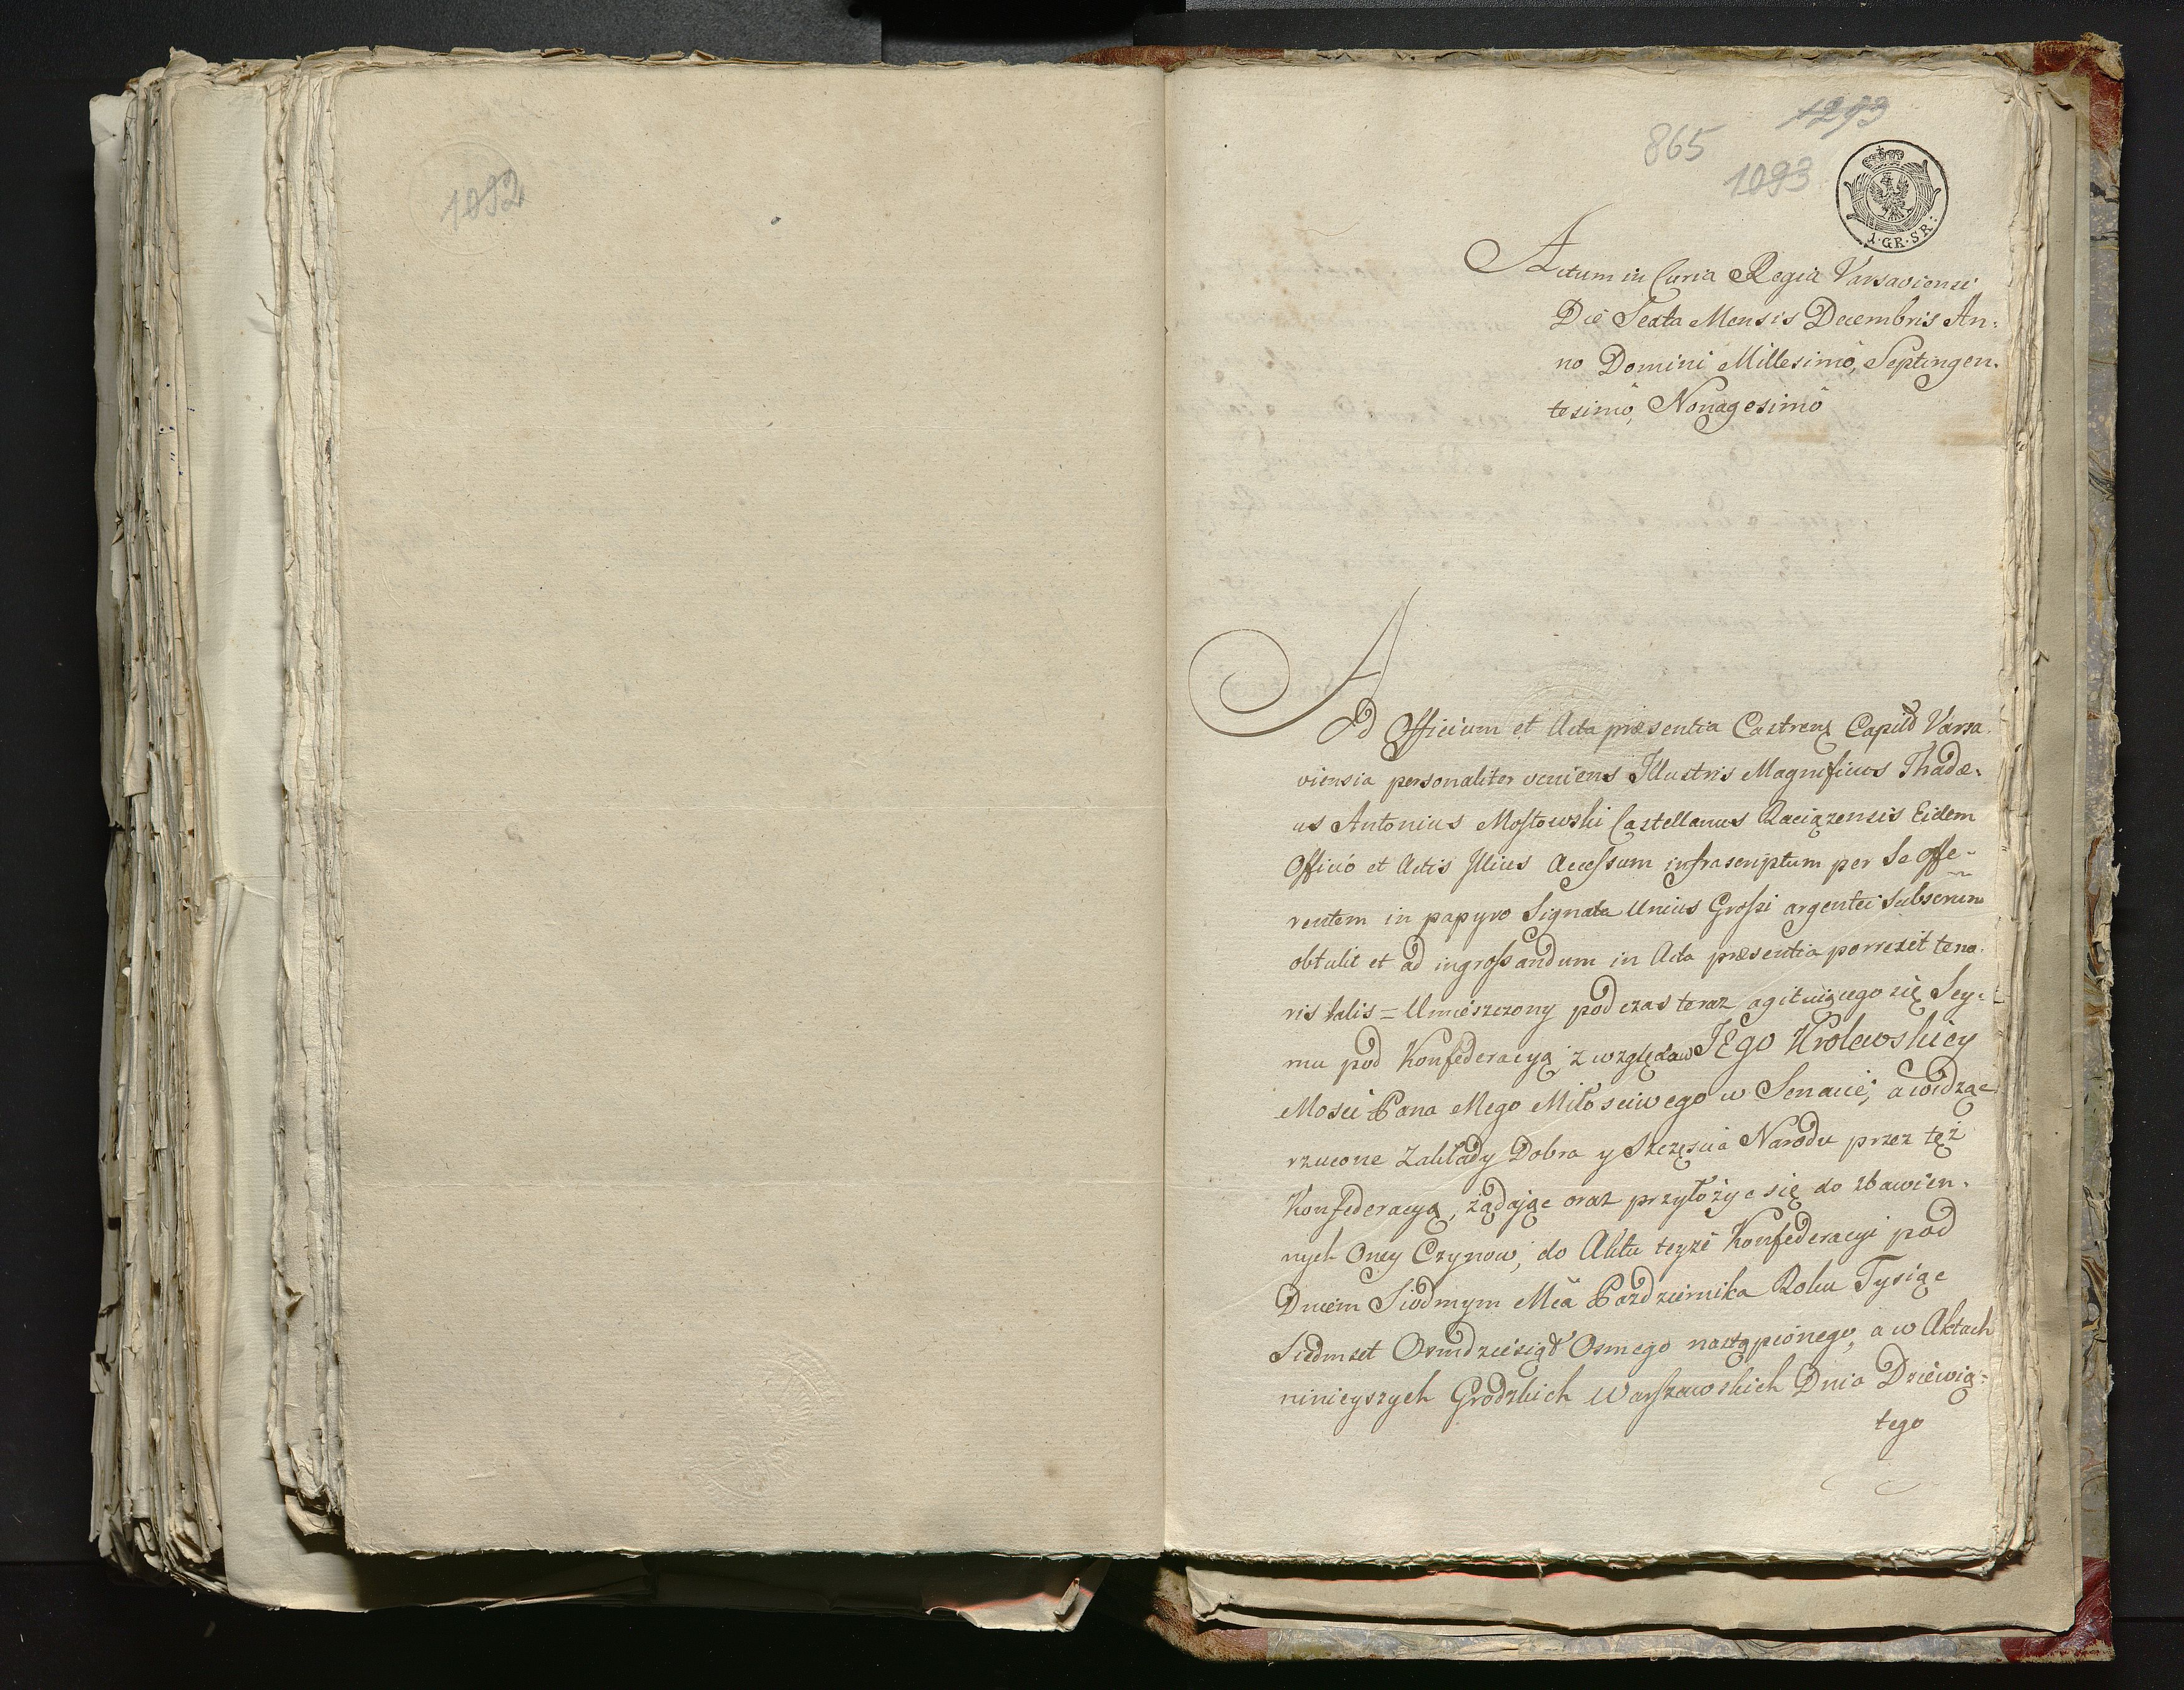 1092
1293
865
1093
1·GR·SR:
Actum in Curia Regia Varsaviensi
Die Sexta Mensis Decembris An:
no Domini Millesimô, Septingen:
tesimô, Nonagesimô
Ad Officium et Acta præsentia Castrenȝ Capitł Varsa:
viensia personaliter veniens Illustris Magnificus Thadæ:
us Antonius Mostowski Castellanus Raciązensis Eidem
Offició et Actis Illius Accessum infrascriptum per Se offe-
rentem in papyro Signata Unius Grossi argentei Subscrium
obtulit et ad ingrossandum in Acta præsentia porrexit teno:
ris talis = Umieszczony podczas teraz agituiącego się Sey:
mu pod Konfederacyą z względow JEgo Krolewskiey
Mosci Pana Mego Miłosciwego w Senacie, a widząc
rzucone Zakłady Dobra y Szczęscia Narodu przez też
Konfederacyą, żądając oraz przyłożyc się do zbawien:
nych Oney Czynow, do Aktu teyże Konfederacyi pod
Dniem Siodmym Mca Pazdziernika Roku Tysiąc
Siedmset Osmdziesiąt Osmego nastąpionego, a w Aktach
ninieyszych Grodzkich Warszawskich Dnia Dziewią:
tego